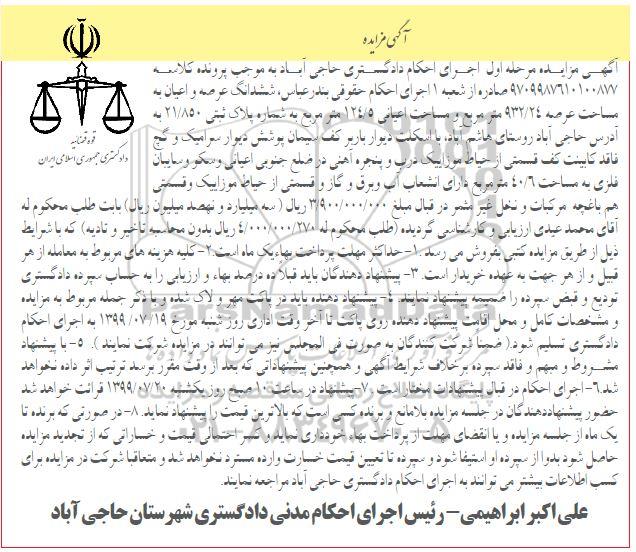 آگهی مزایده
قوه قضائیه
دادگستری جمهوری اسلامی ایران
آگهی مزایده مرحله اول اجرای احکام دادگستری حاجی آباد به موجب پرونده کلاسه
۹۷۰۹۹۸۷۶۱۰۱۰۰۸۷۷ صادره از شعبه ۱ اجرای احکام حقوقی بندرعباس، ششدانگ عرصه و اعیان به
مساحت عرصه ۹۳۲/۲۴ متر مربع و مساحت اعیانی ۱۲۴/۵ متر مربع به شماره پلاک ثبتی ۲۱/۸۵۰ به
آدرس حاجی آباد روستای هاشم آباد، با اسکلت دیوار باربر کف سیمان پوشش دیوار سرامیک و گچ
فاقد کابینت کف قسمتی از حیاط موزاییک درب و پنجره آهنی در ضلع جنوبی اعیانی وسکو وسایبان
فلزی به مساحت ۴۰/۶ مترمربع دارای انشعاب آب وبرق و گاز و قسمتی از حیاط موزاییک وقسمتی
هم باغچه مرکبات و نخل غیر مثمر در قبال مبلغ ۳/۹۰۰/۰۰۰/۰۰۰ ریال ( سه میلیارد و نهصد میلیون ریال) بابت طلب محکوم له
آقای محمد عبدی ارزیابی و کارشناسی گردیده (طلب محکوم له ۴/۰۰۰/۰۰۰/۲۷۰ ریال بدون محاسبه تأخیر و تادیه) که با شرایط
ذیل از طریق مزایده کتبی بفروش می رسد. ۱- حداکثر مهلت پرداخت بهاء یک ماه است. ۲- کلیه هزینه های مربوط به معامله از هر
قبیل و از هر جهت به عهده خریدار است. ۳- پیشنهاد دهندگان باید قبلا ده درصد بهاء و ارزیابی را به حساب سپرده دادگستری
تودیع و قبض سپرده را ضمیمه پیشنهاد نمایند. ۴- پیشنهاد دهنده باید در پاکت مهر و لاک شده و با ذکر جمله مربوط به مزایده
و مشخصات کامل و محل اقامت پیشنهاد دهنده روی پاکت تا آخر وقت اداری روز شنبه مورخ ۱۳۹۹/۰۷/۱۹ به اجرای احکام
دادگستری تسلیم شود.( ضمنا شرکت کنندگان به صورت فی المجلس نیز می توانند در مزایده شرکت نمایند ). ۵- با پیشنهاد
مشروط و مبهم و فاقد سپرده برخلاف شرایط آگهی و همچنین پیشنهاداتی که بعد از وقت مقرر برسد ترتیب اثر داده نخواهد
شد.۶- اجرای احکام در قبال پیشنهادات مختار است. ۷-پیشنهاد در ساعت ۱۰ صبح روز یکشنبه ۱۳۹۹/۰۷/۲۰ قرائت خواهد شد
حضور پیشنهاددهندگان در جلسه مزایده بلامانع و برنده کسی است که بالاترین قیمت را پیشنهاد نماید. ۸- در صورتی که برنده تا
یک ماه از جلسه مزایده و یا انقضای مهلت از پرداخت بهاء خودداری نماید و کسر احتمالی قیمت و خساراتی که از تجدید مزایده
حاصل شود بدوا از سپرده او استیفا شود و سپرده تا تعیین قیمت خسارت وارده مسترد نخواهد شد و متعاقبا شرکت در مزایده برای
کسب اطلاعات بیشتر می توانند به اجرای احکام دادگستری حاجی آباد مراجعه نمایند.
علی اکبر ابراهیمی – رئیس اجرای احکام مدنی دادگستری شهرستان حاجی آباد
ParsNamadData
پایگاه اطلاع رسانی مناقصه و مزایده
۰۲۱-۸۸۳۴۹۶۷۰-۵